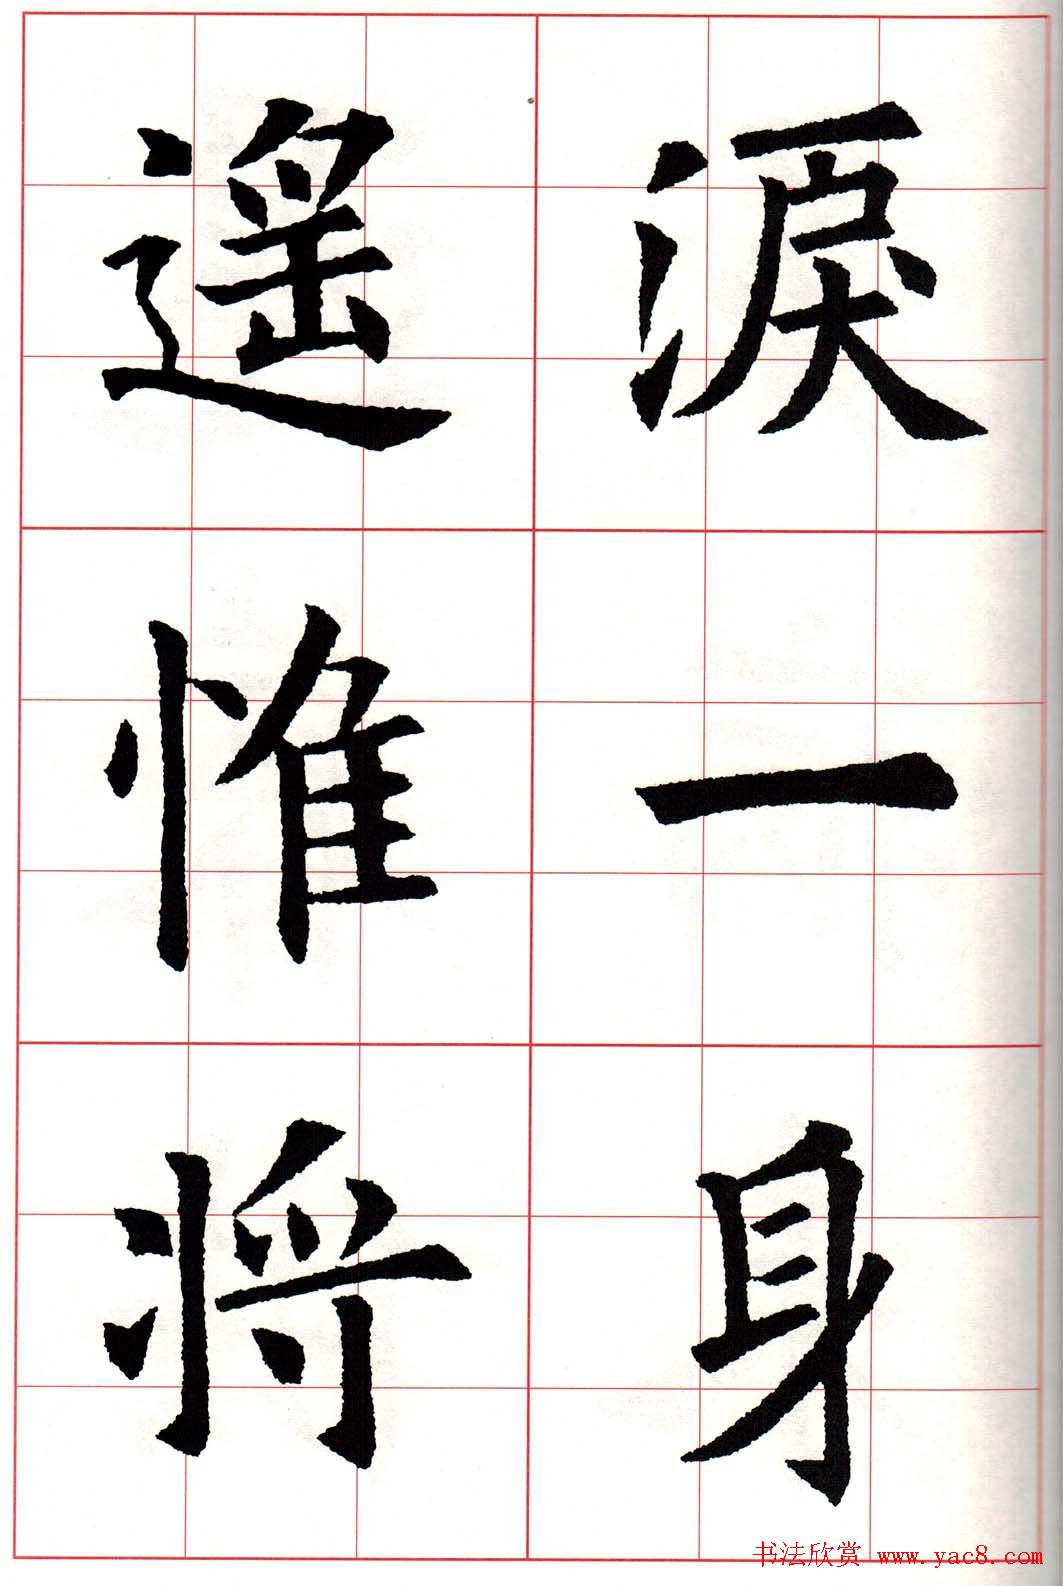 淚一身
遥惟将
书法欣赏 www.yac8.com